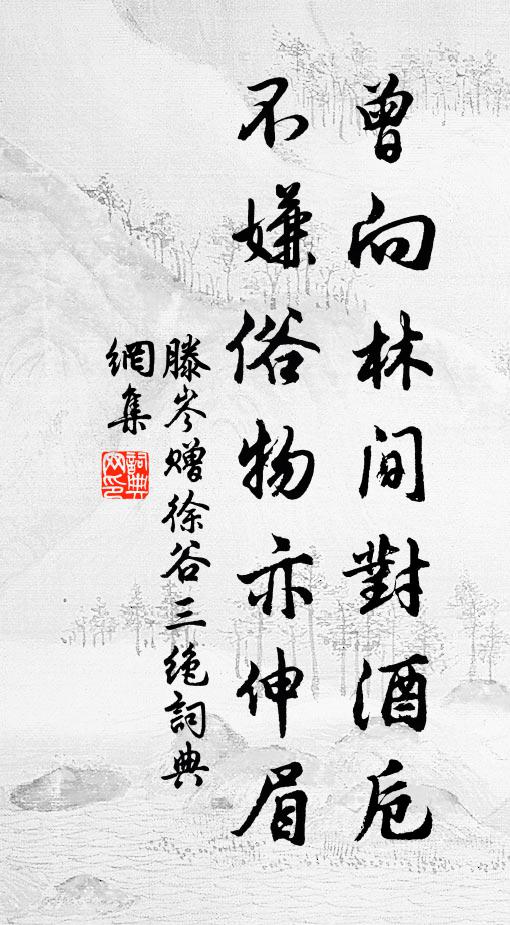 曾向林間對酒卮
不嫌俗物亦伸眉
滕岑贈徐谷三絕詞典
網集
詞典網印